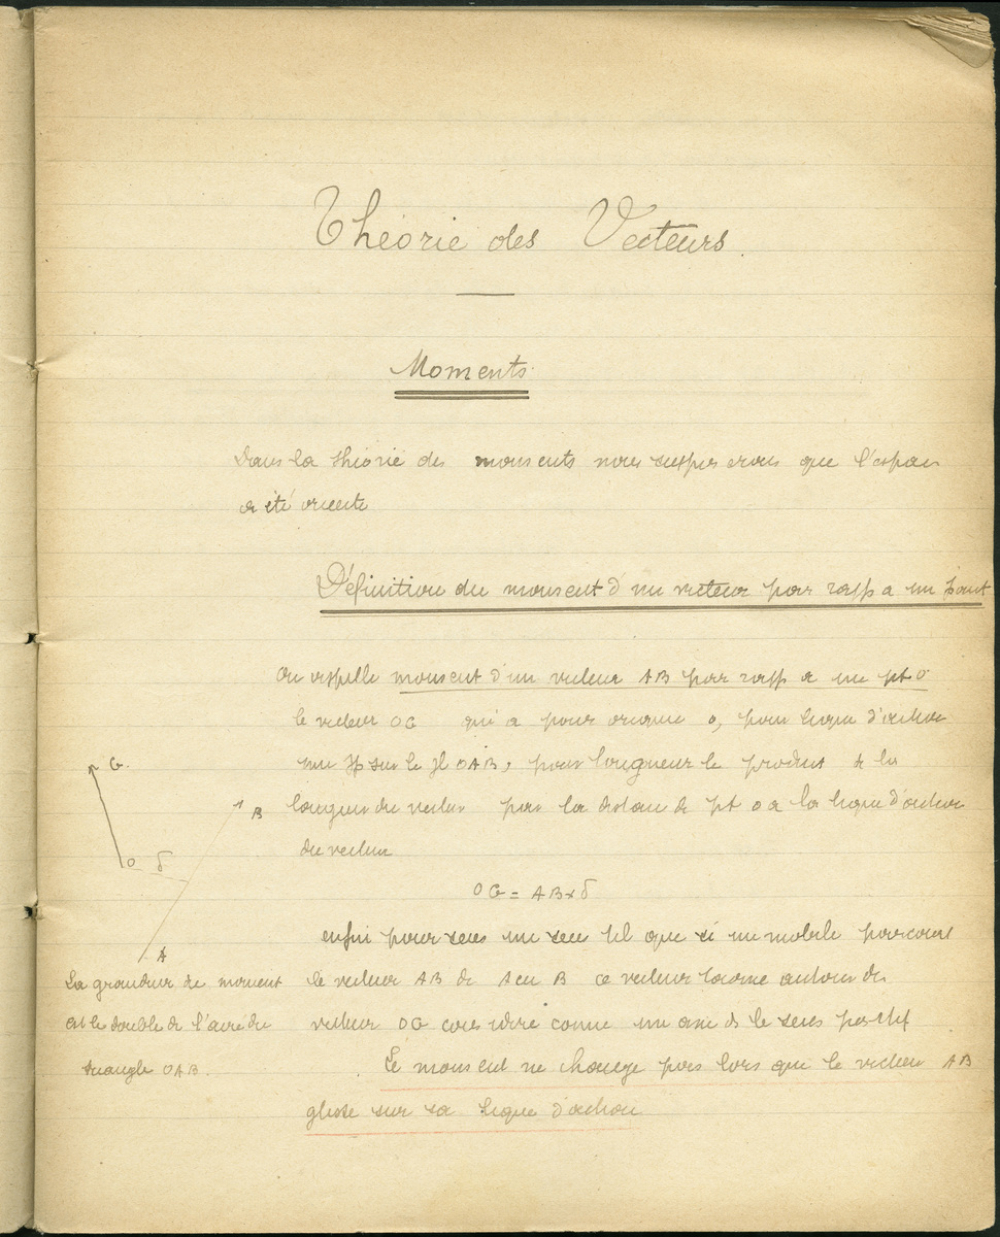 Théorie des Vecteurs.
Moments
Dans la théorie des moments nous supposerons que l'espace
a été orienté
Définition du moment d'un vecteur par rapp a un Point
On appelle moment d'un vecteur AB par rapp a un pt O
le vecteur OG qui a pour origine O, pour ligne d'action
une sur le pl OAB, pour longueur le produit de la
longueur du vecteur par la distance de pt O a la ligne d'action
du vecteur
OG = AB x δ
enfin pour sens un sens tel que si un mobile parcourt
le vecteur AB de A en B ce vecteur tourne autour du
vecteur OG considéré comme un axe ds le sens positif
Le moment ne change pas lors que le vecteur AB
glisse sur sa ligne d'action
G.
B
O δ
A
La grandeur du moment
est le double de l'aire du
triangle OAB.